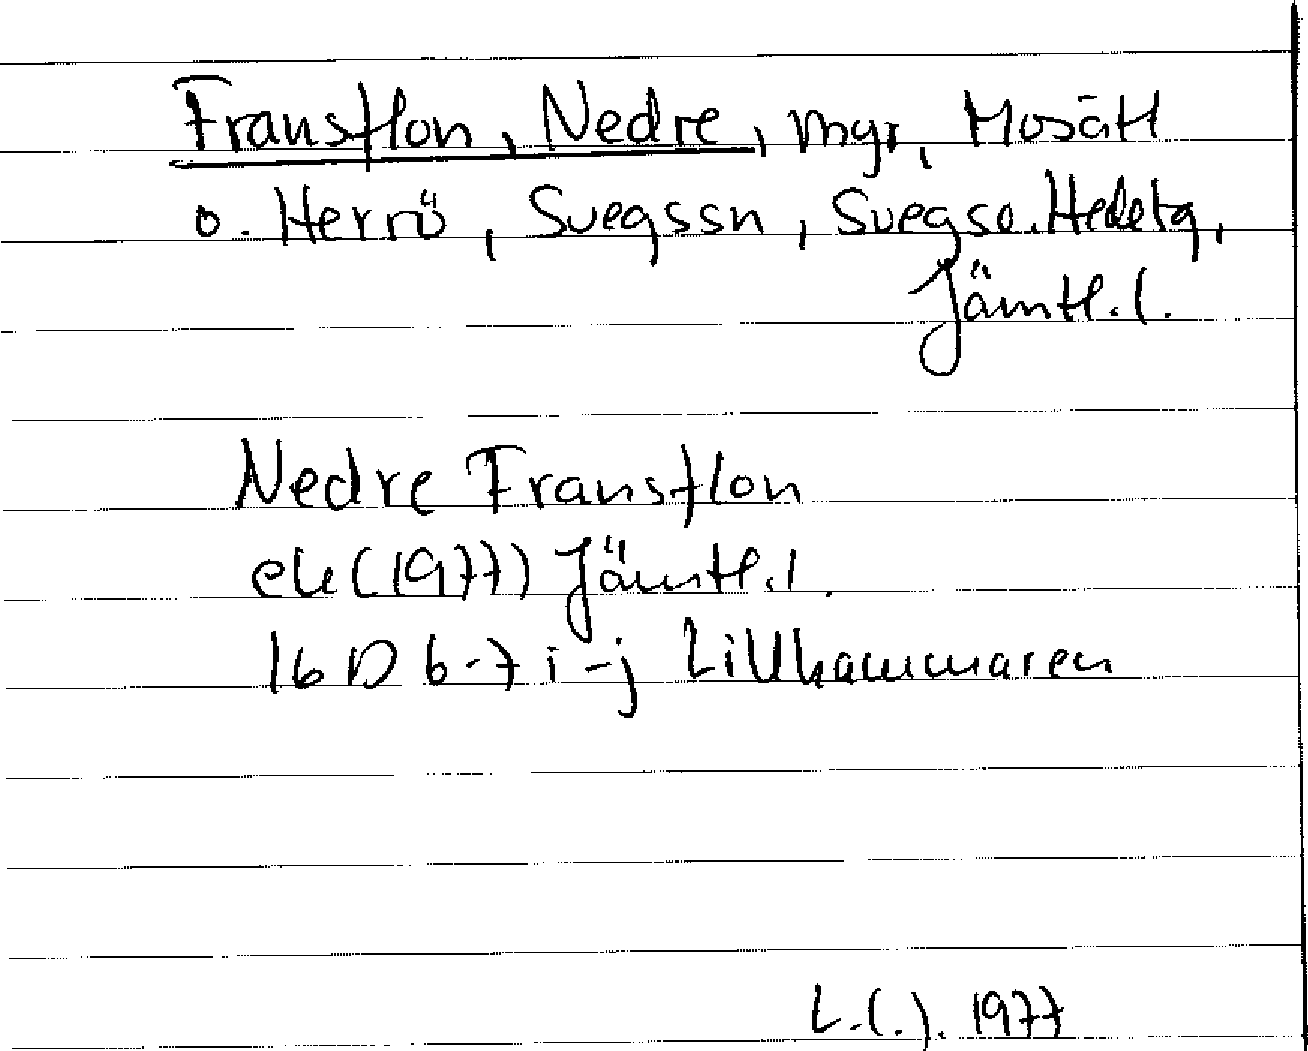 Fransflon, Nedre, mgr, Mosätt
o. Herrö, Svegssn, Svegs o. Hedetg,
Jämtl. l.
Nedre Fransflon
ek (1977) Jämtl. l.
16 D 6-7 i-j Lillhammaren
L.(.). 1977